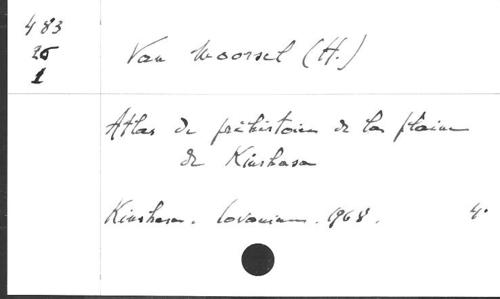 483
25
1
Van Moorsel (H.)
Atlas de préhistoire de la plaine
de Kinshasa
Kinshasa. Lovanium. 1968. 4°